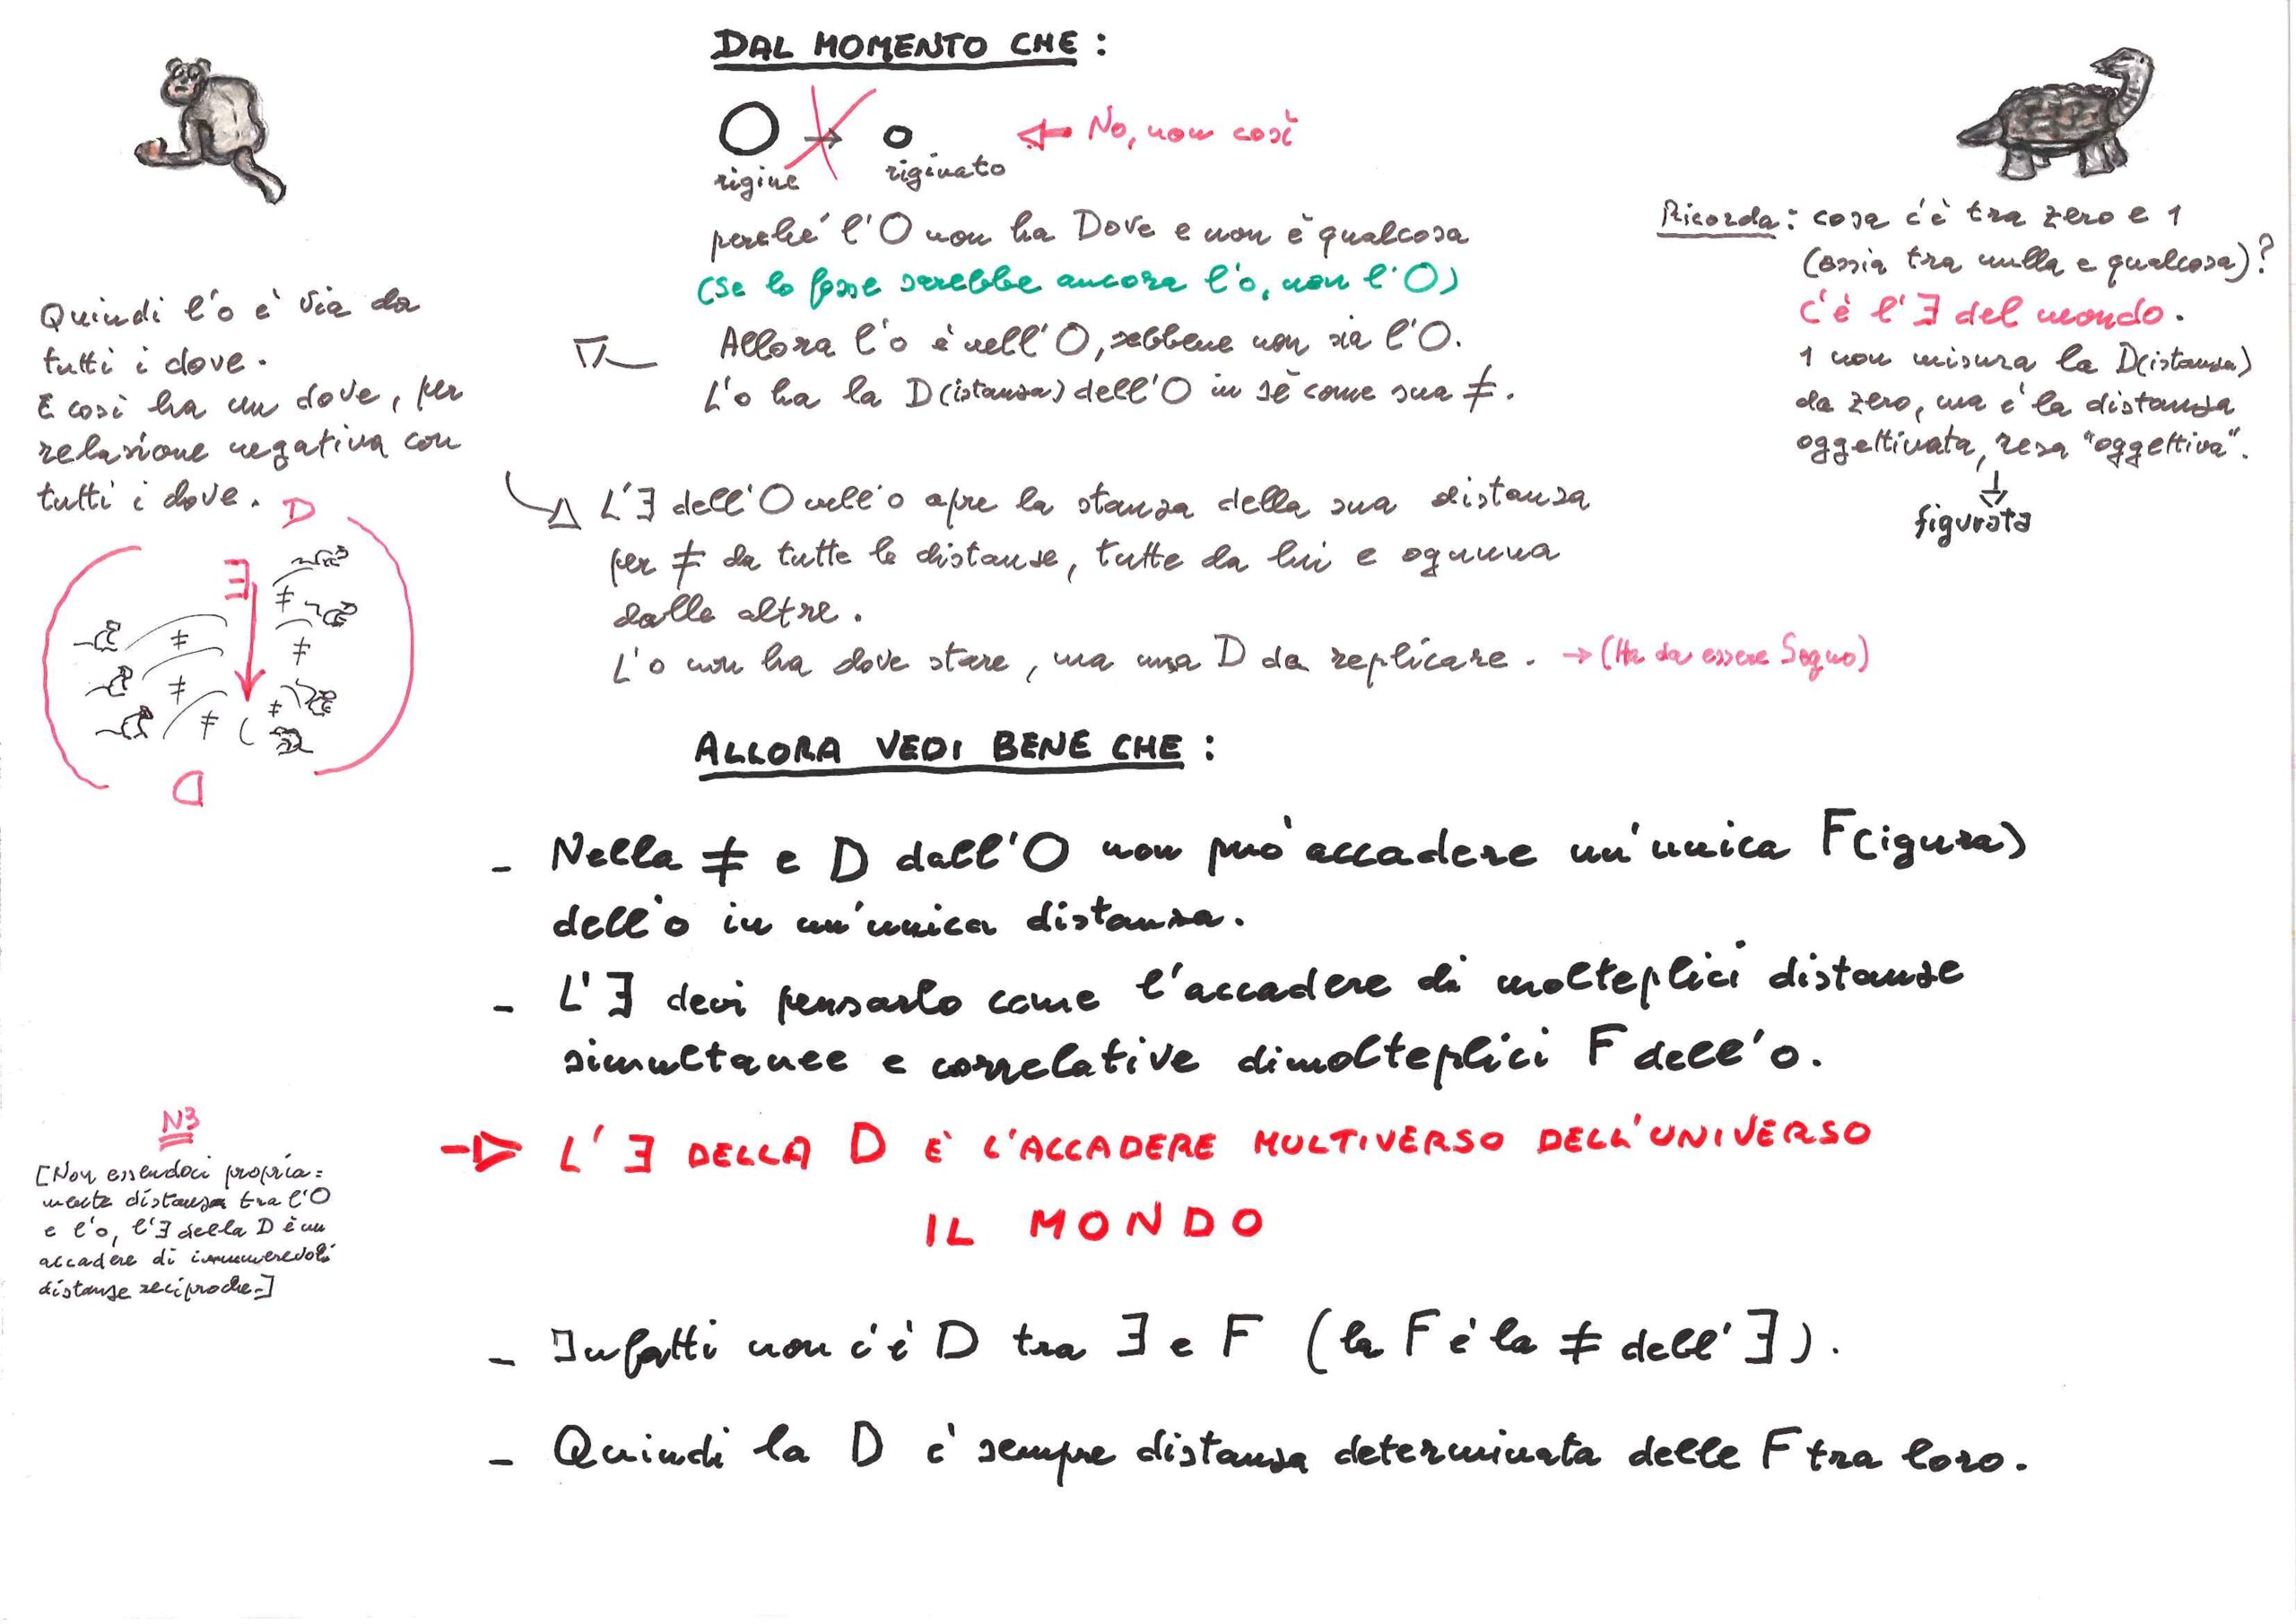 DAL MOMENTO CHE :
O → o
rigine
riginato
← No, non così
perché l'O non ha Dove e non è qualcosa
(se lo fosse sarebbe ancora l'o, non l'O)
Allora l'o è nell'O, sebbene non sia l'O.
L'o ha la D(istanza) dell'O in sé come sua ≠.
Ricorda: cosa c'è tra zero e 1
(ossia tra nulla e qualcosa)?
C'è l'∃ del mondo.
1 non misura la D(istanza)
da zero, ma è la distanza
oggettivata, resa "oggettiva".
figurata
Quindi l'o è via da
tutti i dove.
E così ha un dove, per
relazione negativa con
tutti i dove.
D
∃
≠
≠
≠
≠
≠
≠
D
L'∃ dell'O nell'o apre la stanza della sua distanza
per ≠ da tutte le distanze, tutte da lui e ognuna
dalle altre.
L'o non ha dove stare, ma una D da replicare. → (Ha da essere Segno)
ALLORA VEDI BENE CHE :
- Nella ≠ e D dall'O non può accadere un'unica F(igura)
dell'o in un'unica distanza.
- L'∃ devi pensarlo come l'accadere di molteplici distanze
simultanee e correlative di molteplici F dell'o.
→ L'∃ DELLA D È L'ACCADERE MULTIVERSO DELL'UNIVERSO
IL MONDO
N3
[Non essendoci propria=
mente distanza tra l'O
e l'o, l'∃ della D è un
accadere di innumerevoli
distanze reciproche.]
- Infatti non c'è D tra ∃ e F (la F è la ≠ dell'∃).
- Quindi la D è sempre distanza determinata delle F tra loro.